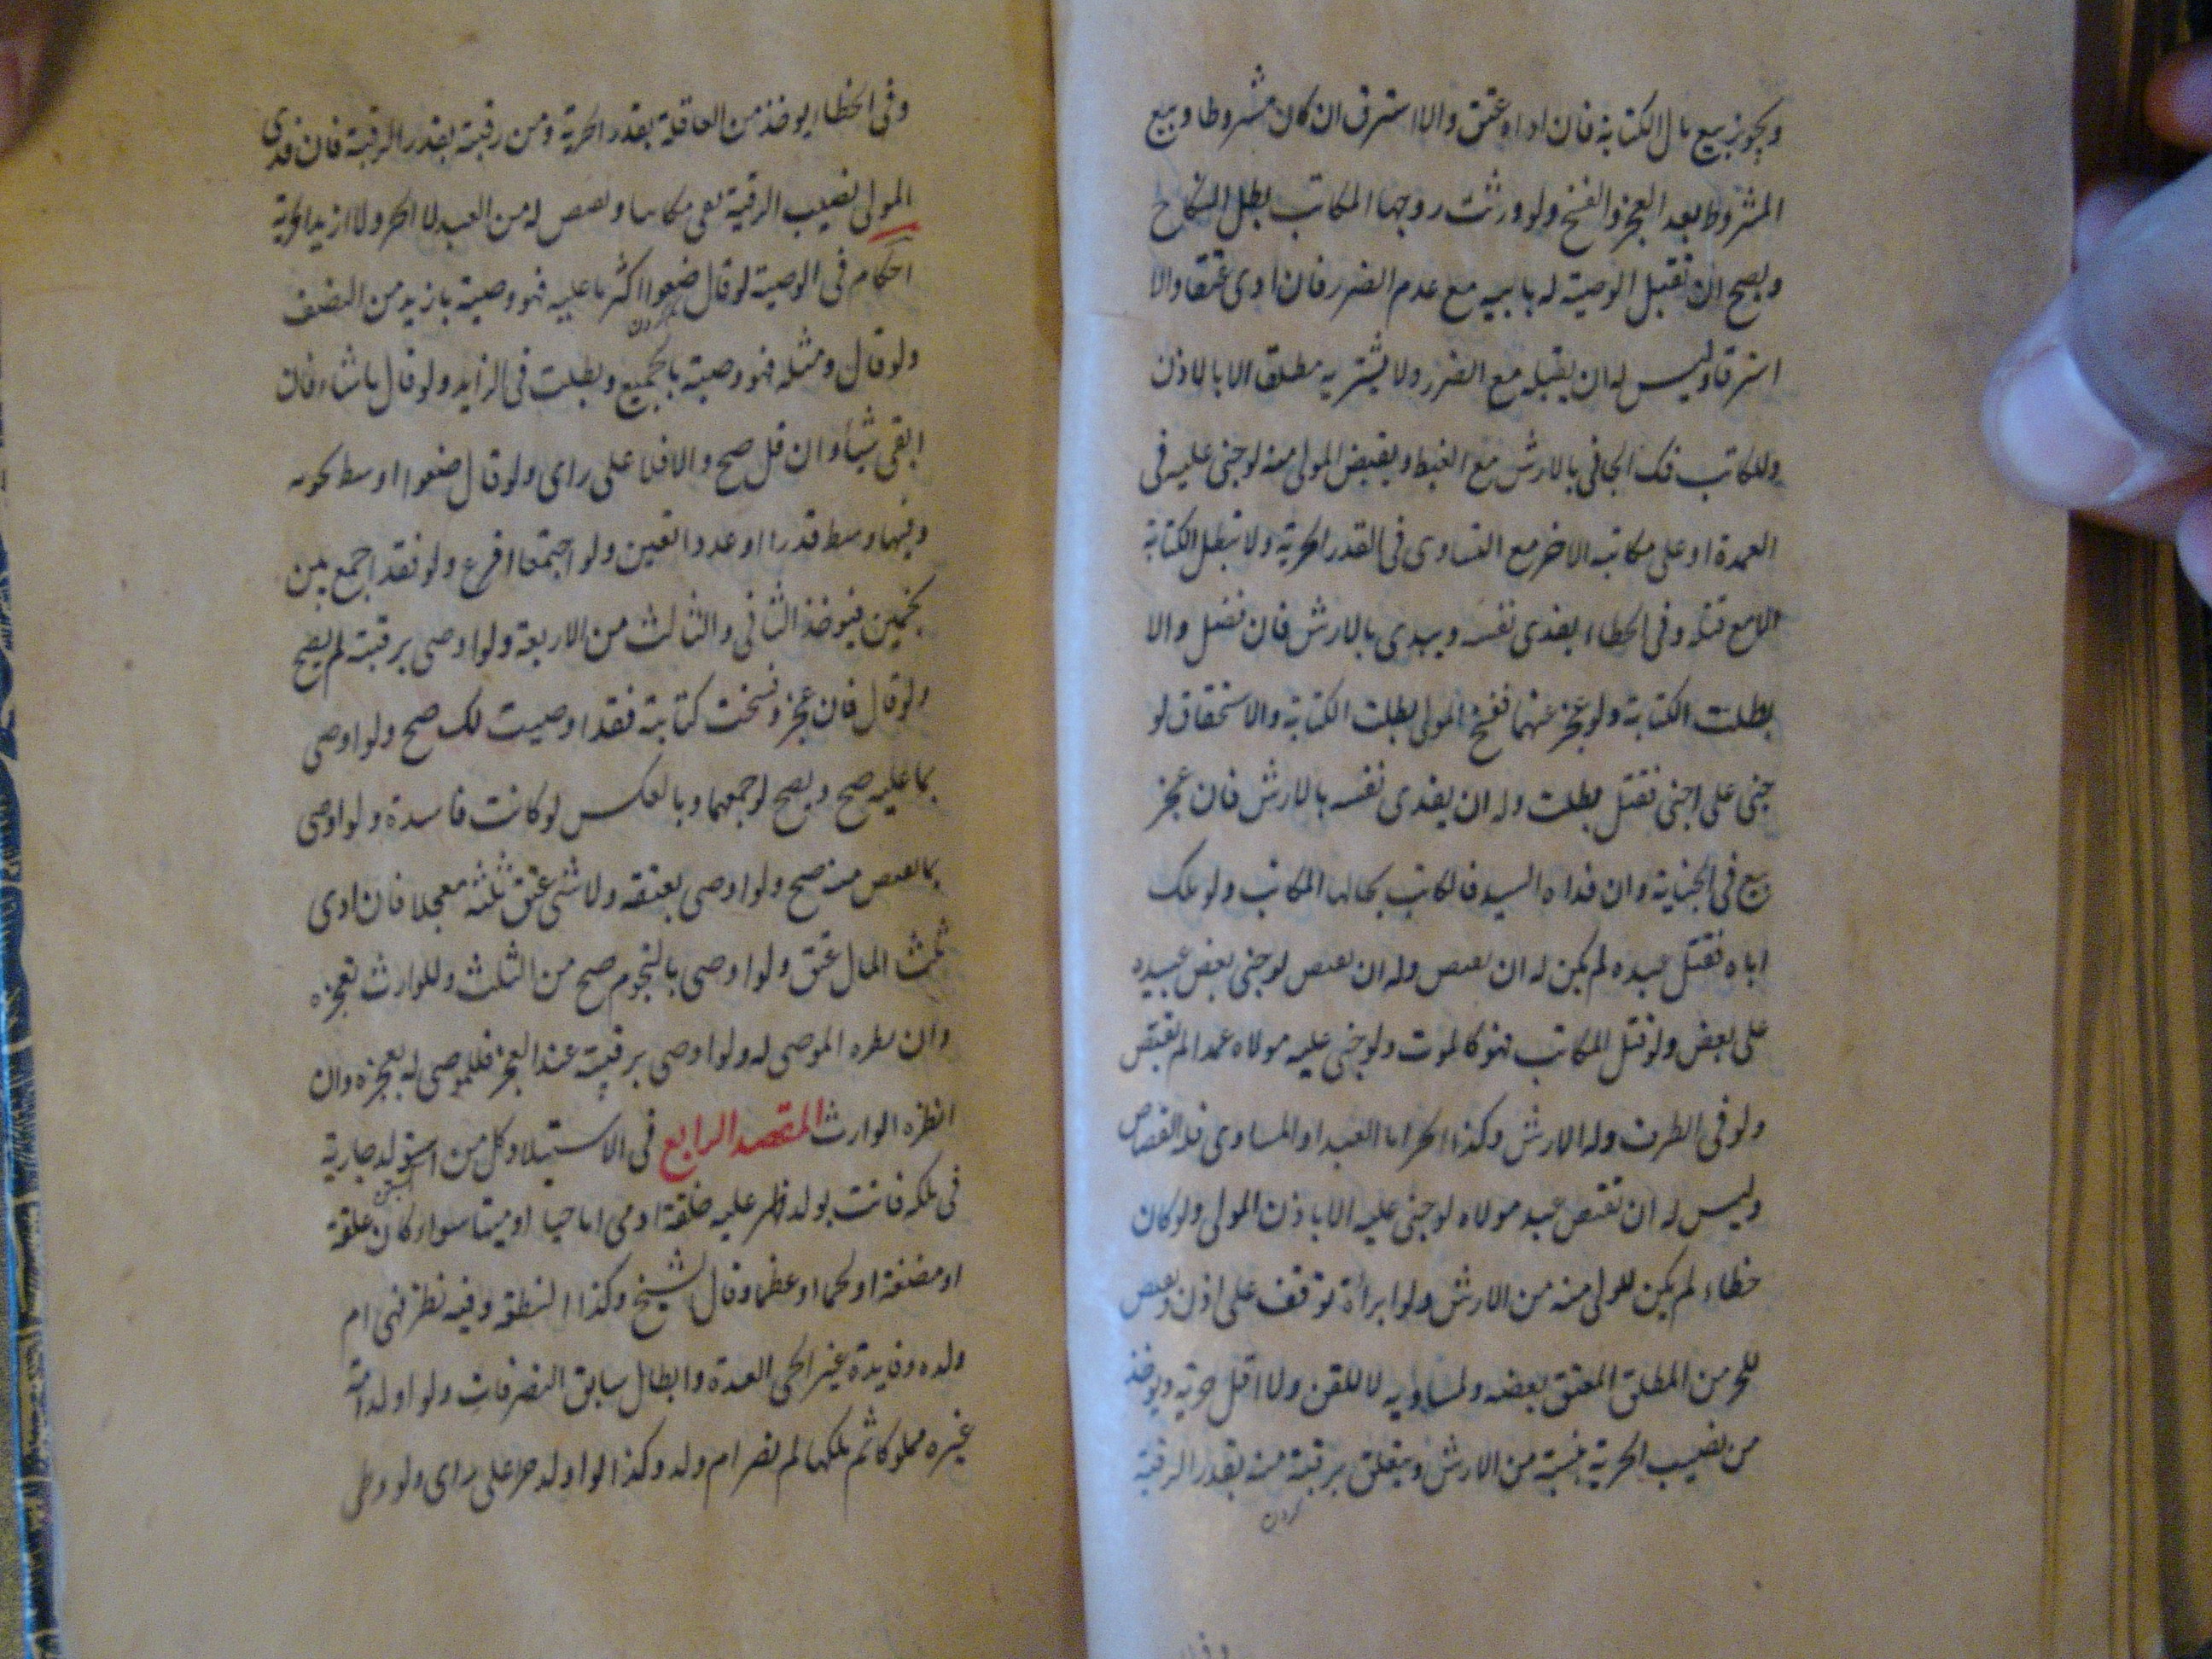 ويجوز بيع مال الكتابة فان اداه عتق والا استرق ان كان مشروطا وبيع
المشروط بعد العجز والفسخ ولو ورثت زوجها المكاتب بطل النكاح
ويصح ان تقبل الوصية له بابيه مع عدم الضرر فان ادى عتقا والا
استرقا وليس له ان يقبله مع الضرر ولا يشتريه مطلقا الا بالاذن
وللمكاتب فك الجاني بالارش مع الغبطة ويقبض المولى منه لو جنى عليه في
العمد او على مكاتبه الاخر مع التساوى في القدر الحرية ولا تبطل الكتابة
الا مع قتله وفى الخطاء يفدى نفسه ويبدى بالارش فان فضل والا
بطلت الكتابة ولو عجز عنهما ففسخ المولى بطلت الكتابة والاستحقاق لو
جنى على اجنبى فقتل بطلت وله ان يفدى نفسه بالارش فان عجز
بيع في الجناية وان فداه السيد فالكاتب بحالها المكاتب ولو ملك
اباه فقتل عبده لم يكن له ان يقتص وله ان يقتص لو جنى بعض عبيده
على بعض ولو قتل المكاتب فهو كالموت ولو جنى عليه مولاه عمدا لم يقتص
ولو في الطرف وله الارش وكذا الحر اما العبد او المساوى فله القصاص
وليس له ان يقتص عبد مولاه لو جنى عليه الا باذن المولى ولو كان
خطاء لم يكن للمولى منعه من الارش ولو ابرأه توقف على اذن ويقتص
للحر من المطلق المعتق بعضه ولمساويه لا للقن ولا اقل حرية ويوخذ
من نصيب الحرية بنسبته من الارش ويتعلق برقبته منه بقدر الرقية
وفى الخطاء يوخذ من العاقلة بقدر الحرية ومن رقبته بقدر الرقية فان فدى
المولى نصيب الرقية بقى مكاتبا ويقتص له من العبد لا الحر ولا ازيد حرية
احكام في الوصية لو قال ضعوا اكثر ما عليه فهو وصية بازيد من النصف
ولو قال ومثله فهو وصية بالجميع وبطلت في الزايد ولو قال ما شاء فان
ابقى شيأ وان قل صح والا فلا على راى ولو قال ضعوا اوسط نجومه
وفيها وسط قدرا او عددا تعين ولو اجتمعا اقرع ولو فقد اجمع بين
نجمين فيوخذ الثانى والثالث من الاربعة ولو اوصى برقبته لم يصح
ولو قال فان عجز وفسخت كتابته فقد اوصيت لك صح ولو اوصى
بما عليه صح ويصح لو جمعهما وبالعكس لو كانت فاسدة ولو اوصى
بما يقبض منه صح ولو اوصى بعتقه ولا شئ عتق ثلثه معجلا فان ادى
ثلث المال عتق ولو اوصى بالنجوم صح من الثلث وللوارث تعجيزه
وان انظره الموصى له ولو اوصى برقبته عند العجز فللموصى له تعجيزه وان
انظره الوارث المقصد الرابع في الاستيلاد كل من استولد جارية
في ملكه فاتت بولد ظهر عليه خلقة ادمى اما حيا او ميتا سواء كان علقة
او مضغة او لحما او عظما وقال الشيخ وكذا النطفة وفيه نظر فهى ام
ولده وفايدة غير الحى العدة وابطال سابق التصرفات ولو اولد امة
غيره مملوكا ثم ملكها لم تصر ام ولد وكذا لو اولد حرا على راى ولو وطى